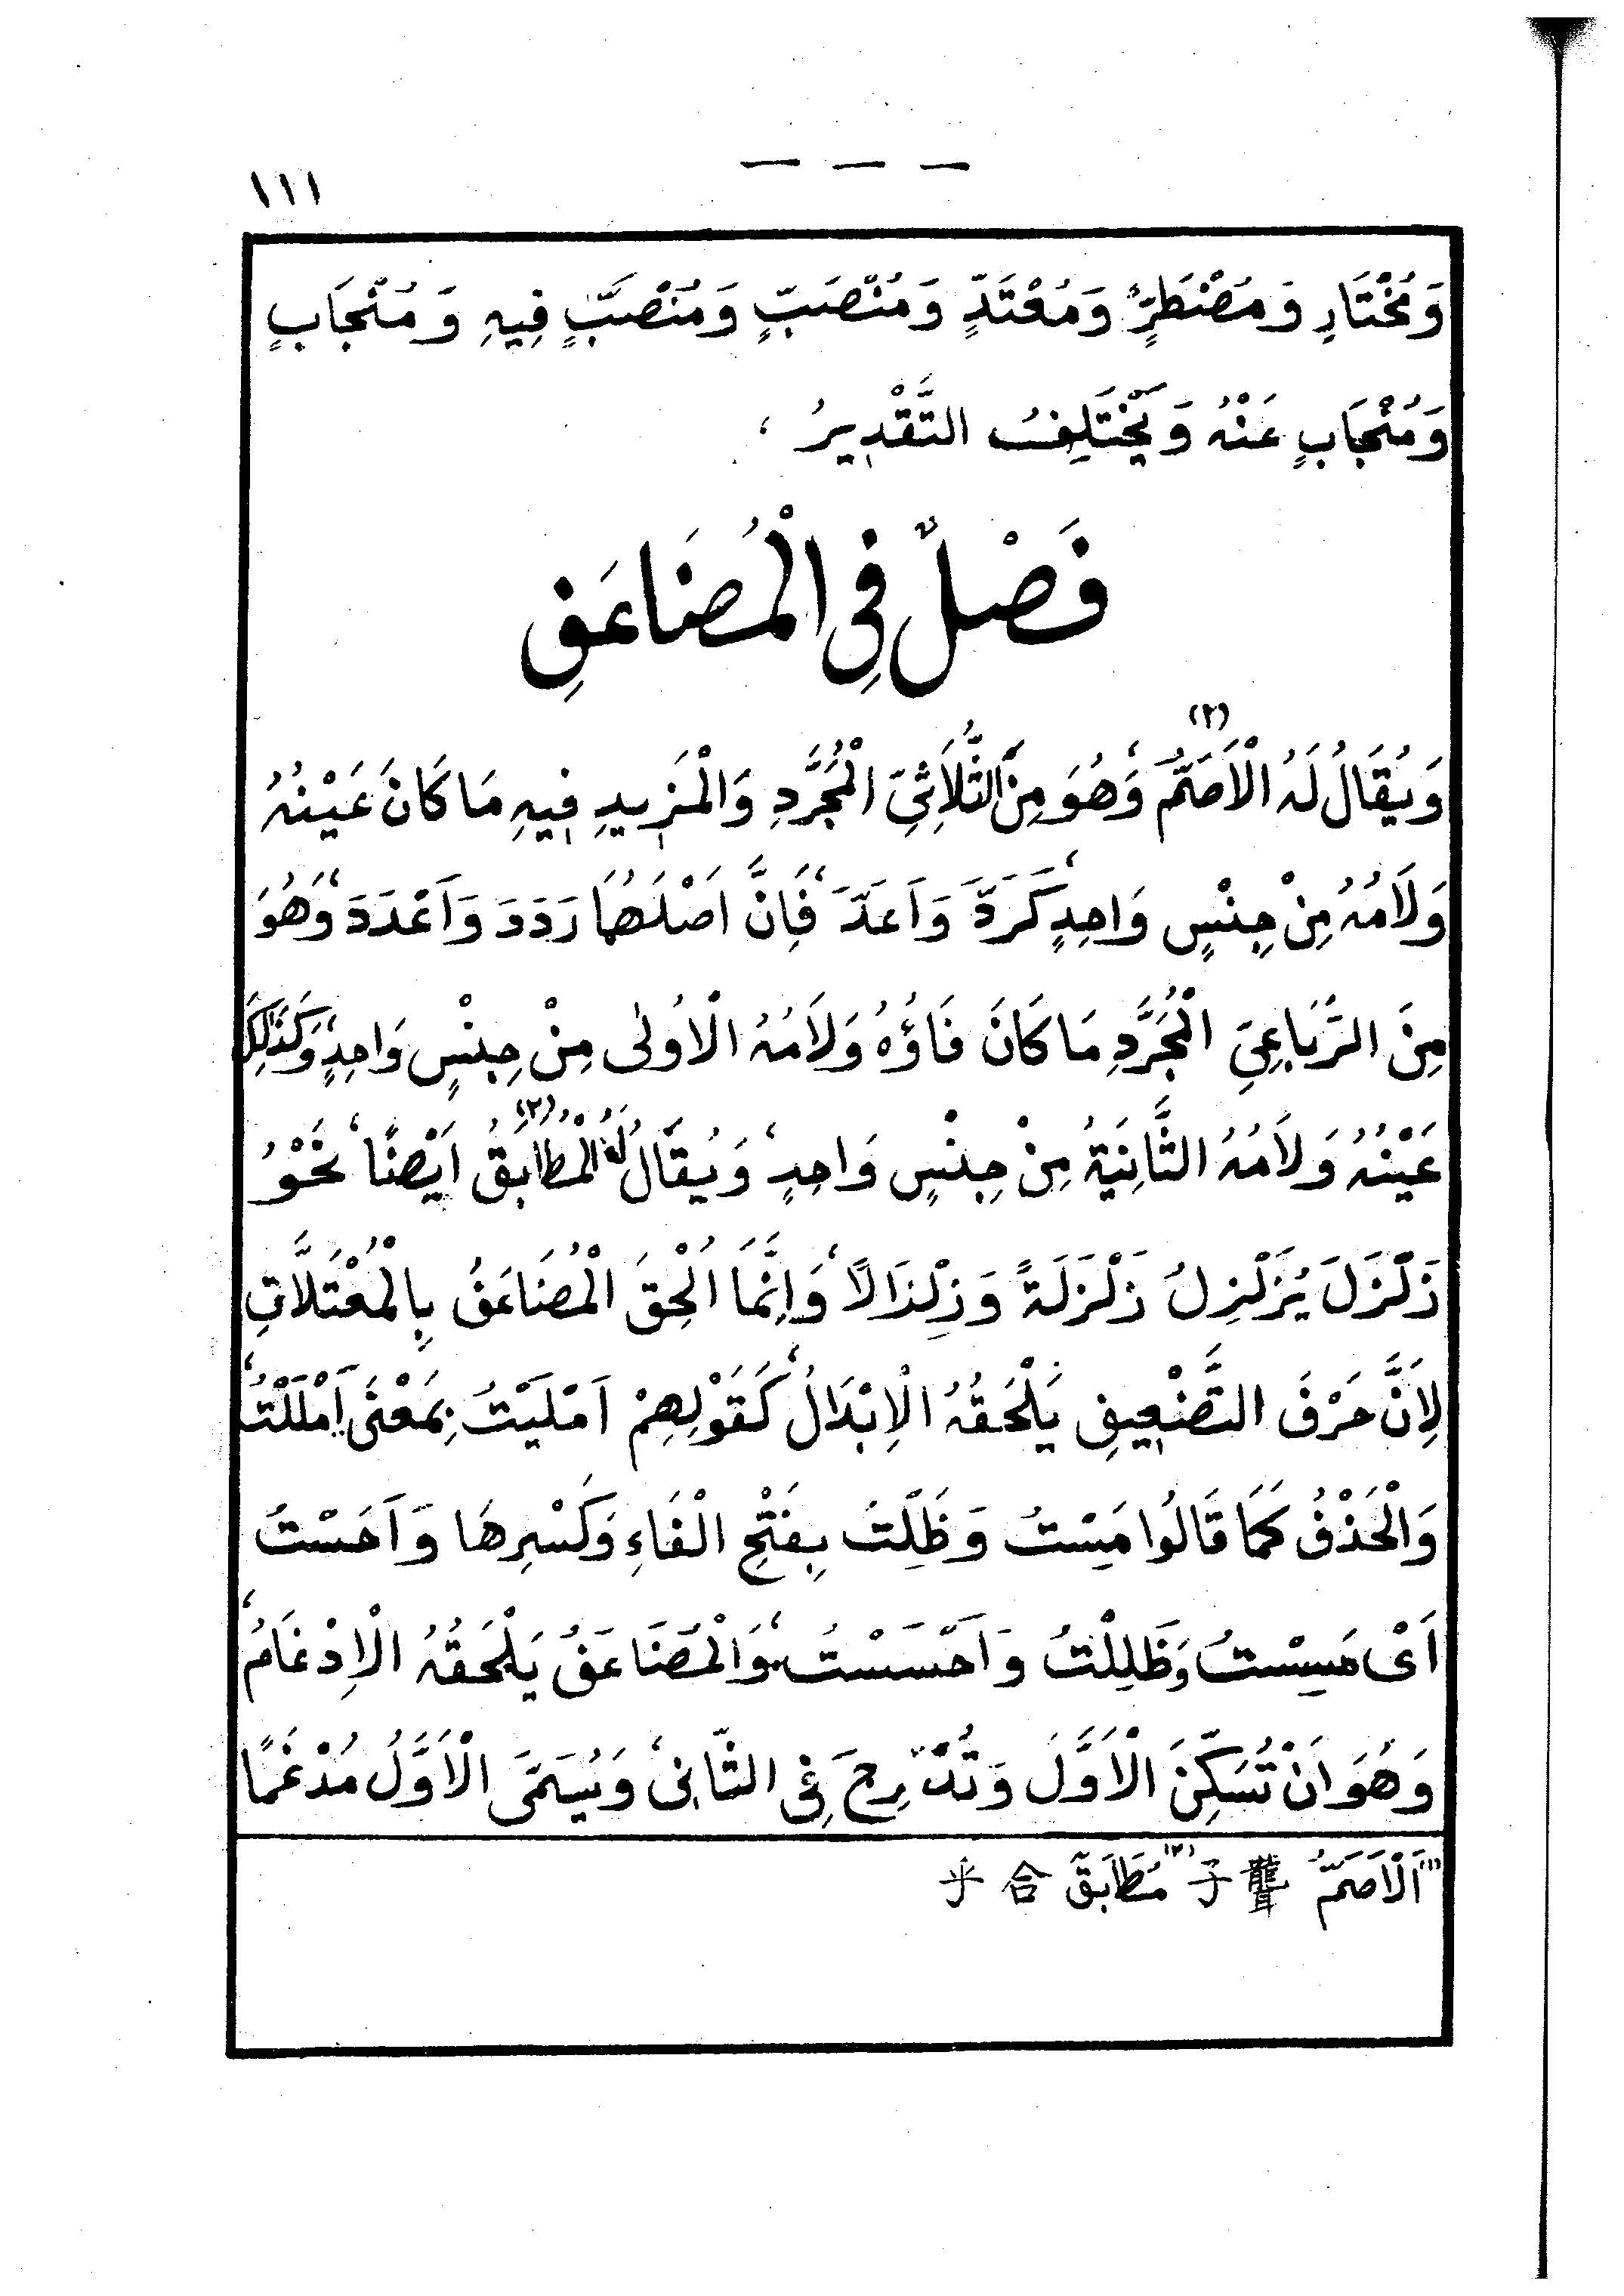 ١١١
وَمُخْتَارٍ وَمُضْطَرٍّ وَمُعْتَدٍّ وَمُنْصَبٍّ وَمُنْصَبٍّ فِيهِ وَمُنْجَابٍ
وَمُنْجَابٍ عَنْهُ وَيَخْتَلِفُ التَّقْدِيرُ ،
فَصْلٌ فِي الْمُضَاعَفِ
وَيُقَالُ لَهُ الْاَصَمُّ (٢) وَهُوَ مِنَ الثُّلَاثِيِّ الْمُجَرَّدِ وَالْمَزِيدِ فِيهِ مَا كَانَ عَيْنُهُ
وَلَامُهُ مِنْ جِنْسٍ وَاحِدٍ، كَرَدَّ وَاَعَدَّ، فَاِنَّ اَصْلَهُمَا رَدَدَ وَاَعْدَدَ، وَهُوَ
مِنَ الرُّبَاعِيِّ الْمُجَرَّدِ مَا كَانَ فَاؤُهُ وَلَامُهُ الْاُولٰى مِنْ جِنْسٍ وَاحِدٍ، وَكَذٰلِكَ
عَيْنُهُ وَلَامُهُ الثَّانِيَةُ مِنْ جِنْسٍ وَاحِدٍ، وَيُقَالُ لَهُ الْمُطَابَقُ (٢) اَيْضًا، نَحْوُ
زَلْزَلَ يُزَلْزِلُ زَلْزَلَةً وَزِلْزَالًا، وَاِنَّمَا اُلْحِقَ الْمُضَاعَفُ بِالْمُعْتَلَّاتِ
لِاَنَّ حَرْفَ التَّضْعِيفِ يَلْحَقُهُ الْاِبْدَالُ، كَقَوْلِهِمْ اَمْلَيْتُ بِمَعْنَى اَمْلَلْتُ،
وَالْحَذْفُ كَمَا قَالُوا مَِسْتُ وَظَِلْتُ بِفَتْحِ الْفَاءِ وَكَسْرِهَا وَاَحَسْتُ
اَىْ مَسِسْتُ وَظَلِلْتُ وَاَحْسَسْتُ، وَالْمُضَاعَفُ يَلْحَقُهُ الْاِدْغَامُ،
وَهُوَ اَنْ تُسَكِّنَ الْاَوَّلَ وَتُدْرِجَ فِي الثَّانِي، وَيُسَمَّى الْاَوَّلُ مُدْغَمًا
(١) اَلْاَصَمُّ 聾子 (٢) مُطَابَقٌ 合乎